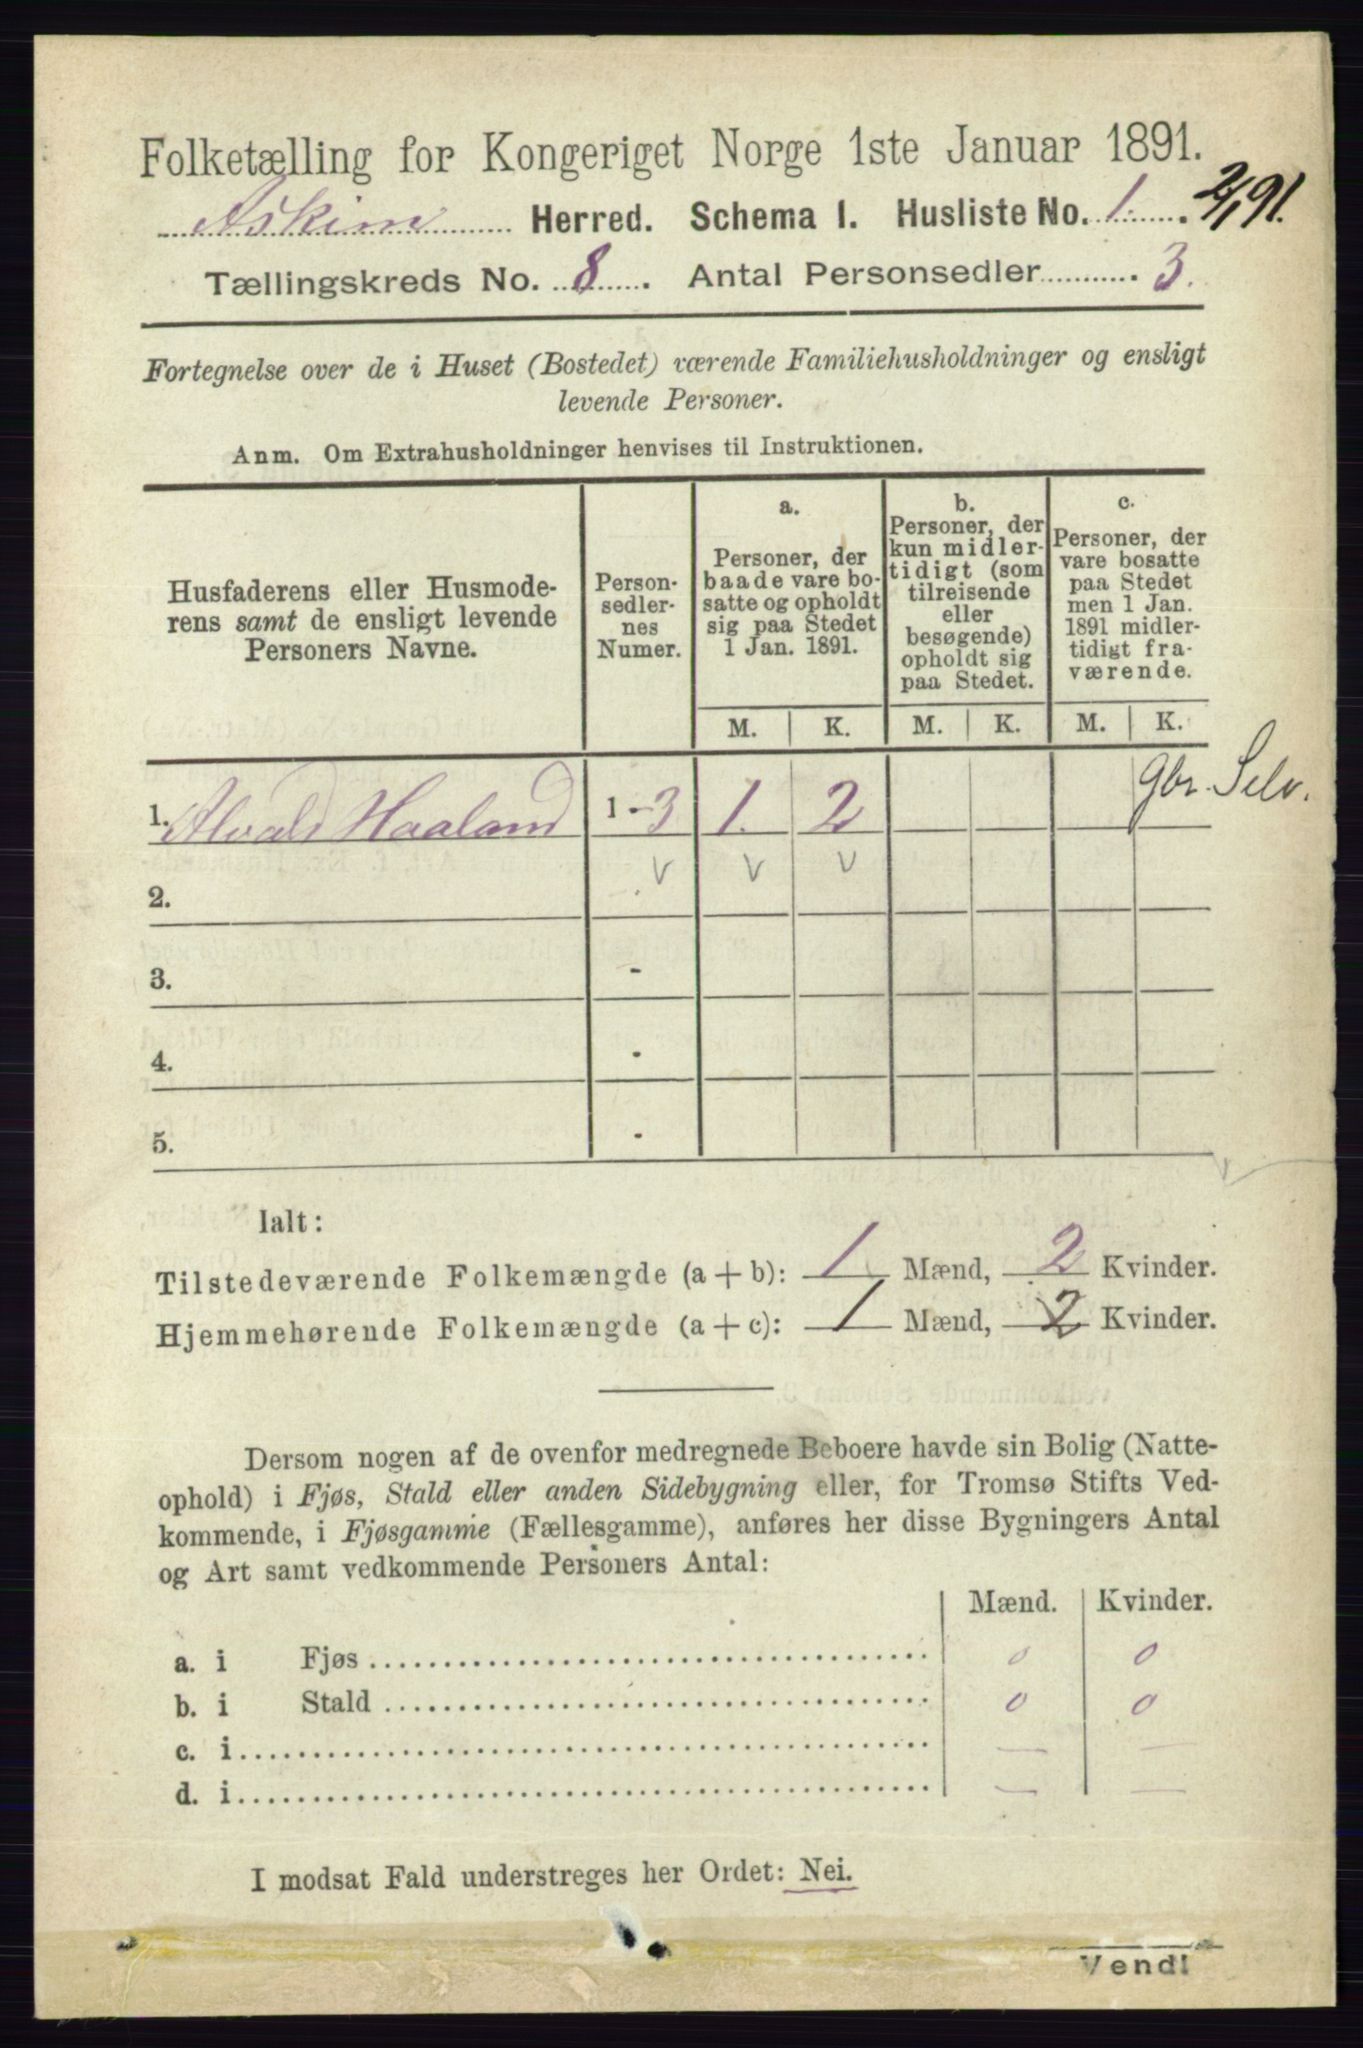 Folketælling for Kongeriget Norge 1ste Januar 1891.
Askim Herred. Schema I. Husliste No. 1. 2/1 91.
Tællingskreds No. 8. Antal Personsedler 3.
Fortegnelse over de i Huset (Bostedet) værende Familiehusholdninger og ensligt
levende Personer.
Anm. Om Extrahusholdninger henvises til Instruktionen.
Husfaderens eller Husmode-
rens samt de ensligt levende
Personers Navne.
Person-
sedler-
nes
Numer.
a.
Personer, der
baade vare bo-
satte og opholdt
sig paa Stedet
1 Jan. 1891.
b.
Personer, der
kun midler-
tidigt (som
tilreisende
eller
besøgende)
opholdt sig
paa Stedet.
c.
Personer, der
vare bosatte
paa Stedet
men 1 Jan.
1891 midler-
tidigt fra-
værende.
M. K. M. K. M. K.
1. Alvald Haaland 1-3 1. 2 gbr. Selv.
v v v
2.
3. -
4. -
5. -
Ialt:
Tilstedeværende Folkemængde (a + b): 1 Mænd, 2 Kvinder.
Hjemmehørende Folkemængde (a + c): 1 Mænd, 2 Kvinder.
Dersom nogen af de ovenfor medregnede Beboere havde sin Bolig (Natte-
ophold) i Fjøs, Stald eller anden Sidebygning eller, for Tromsø Stifts Ved-
kommende, i Fjøsgamme (Fællesgamme), anføres her disse Bygningers Antal
og Art samt vedkommende Personers Antal:
Mænd. Kvinder.
a. i Fjøs 0 0
b. i Stald 0 0
c. i — —
d. i — —
I modsat Fald understreges her Ordet: Nei.
Vend!